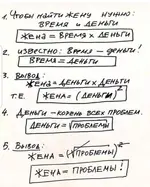 1. Чтобы найти жену нужно:
время и деньги
жена = время × деньги
2. известно: время – деньги!
время = деньги
3. вывод:
жена = деньги × деньги
т.е. жена = (деньги)²
4. деньги – корень всех проблем.
деньги = √проблемы
5. вывод:
жена = (√проблемы)²
жена = проблемы!